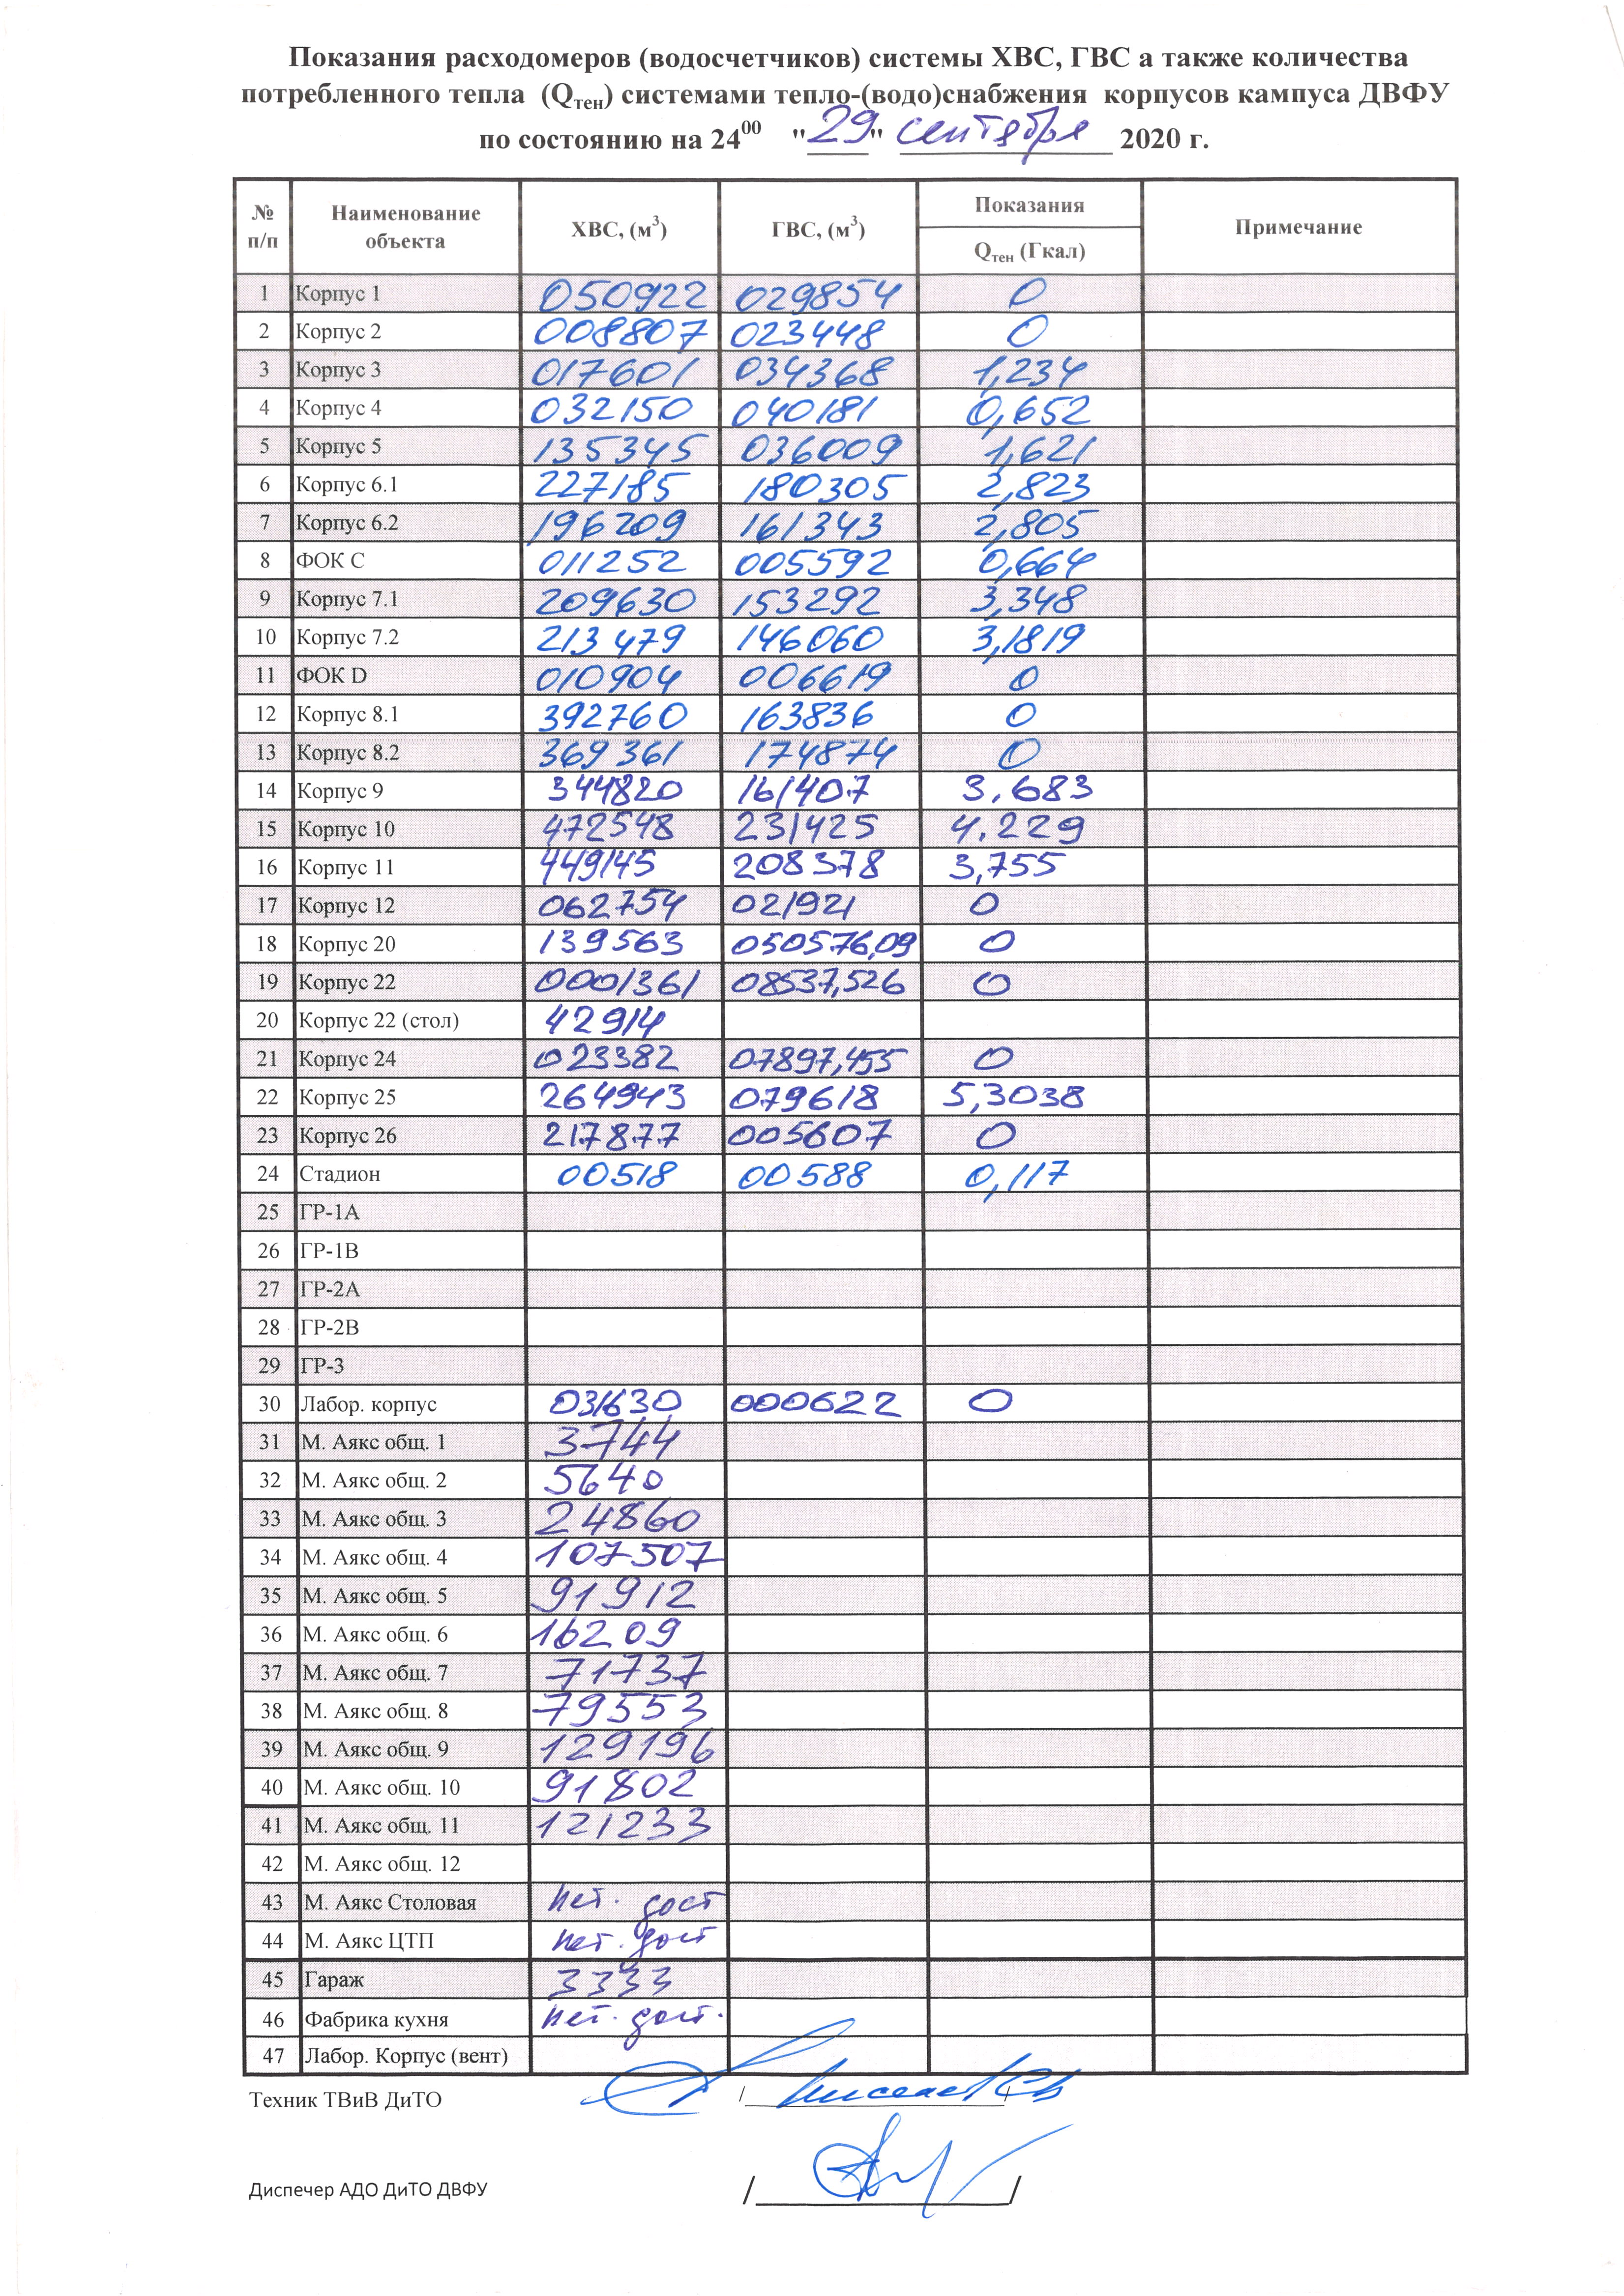 Показания расходомеров (водосчетчиков) системы ХВС, ГВС а также количества
потребленного тепла (Qтен) системами тепло-(водо)снабжения корпусов кампуса ДВФУ
по состоянию на 24⁰⁰ "29" сентября 2020 г.
№ п/п Наименование объекта ХВС, (м³) ГВС, (м³) Показания Qтен (Гкал) Примечание
1 Корпус 1 050922 029854 0
2 Корпус 2 008807 023448 0
3 Корпус 3 017601 034368 1,234
4 Корпус 4 032150 040181 0,652
5 Корпус 5 135345 036009 1,621
6 Корпус 6.1 227185 180305 2,823
7 Корпус 6.2 196209 161343 2,805
8 ФОК С 011252 005592 0,664
9 Корпус 7.1 209630 153292 3,348
10 Корпус 7.2 213479 146060 3,1819
11 ФОК D 010904 006619 0
12 Корпус 8.1 392760 163836 0
13 Корпус 8.2 369361 174874 0
14 Корпус 9 344820 161407 3.683
15 Корпус 10 472548 231425 4.229
16 Корпус 11 449145 208378 3,755
17 Корпус 12 062754 021921 0
18 Корпус 20 139563 050576,09 0
19 Корпус 22 0001361 08537,526 0
20 Корпус 22 (стол) 42914
21 Корпус 24 023382 07897,455 0
22 Корпус 25 264943 079618 5,3038
23 Корпус 26 217877 005607 0
24 Стадион 00518 00588 0,117
25 ГР-1А
26 ГР-1В
27 ГР-2А
28 ГР-2В
29 ГР-3
30 Лабор. корпус 031630 000622 0
31 М. Аякс общ. 1 3744
32 М. Аякс общ. 2 5640
33 М. Аякс общ. 3 24860
34 М. Аякс общ. 4 107507
35 М. Аякс общ. 5 91912
36 М. Аякс общ. 6 16209
37 М. Аякс общ. 7 71737
38 М. Аякс общ. 8 79553
39 М. Аякс общ. 9 129196
40 М. Аякс общ. 10 91802
41 М. Аякс общ. 11 121233
42 М. Аякс общ. 12
43 М. Аякс Столовая нет. дост
44 М. Аякс ЦТП нет. дост
45 Гараж 3333
46 Фабрика кухня нет. дост.
47 Лабор. Корпус (вент)
Техник ТВиВ ДиТО / /
Диспечер АДО ДиТО ДВФУ / /